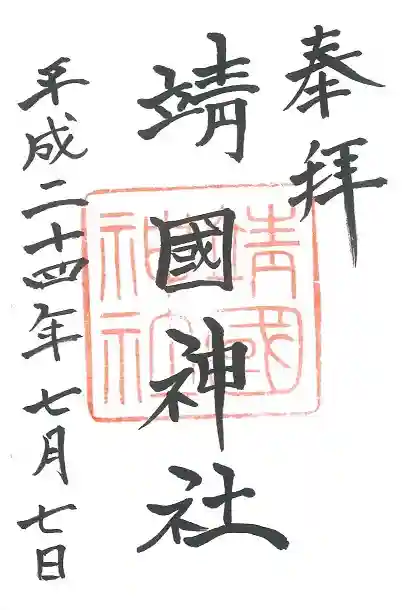 奉拝
靖國神社
靖國神社
平成二十四年七月七日